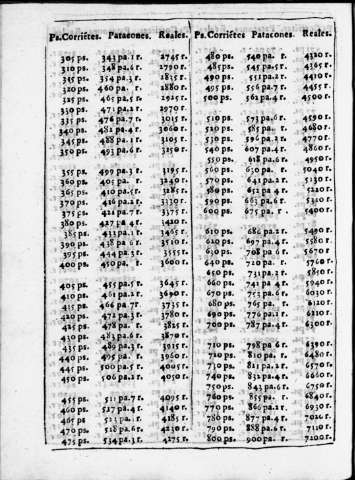 Ps.Corriẽtes. Patacones. Reales.
305 ps. 343 pa 1 r. 2745 r.
310 ps. 348 pa.6 r. 2790 r.
315 ps. 354 pa 3 r. 2835 r.
320 ps. 460 pa. r. 2880 r.
325 ps. 465 pa.5 r. 2925 r.
330 ps. 471 pa.2 r. 2970 r.
335 ps. 476 pa.7 r. 3015 r.
340 ps. 482 pa.4 r. 3060 r.
345 ps. 488 pa 1 r. 3105 r.
350 ps. 493 pa.6 r. 3250 r.
355 ps. 499 pa.3 r. 3195 r.
360 ps. 405 pa. r. 3240 r.
365 ps. 410 pa.5r. 3285 r.
370 ps. 416 pa.2 r. 3130 r.
375 ps. 421 pa.7r. 3375 r.
380 ps. 427 pa.4 r. 1420 r.
385 ps. 433 pa.1 r. 3465 r.
390 ps. 438 pa.6 r. 3510 r.
395 ps. 444 pa.3 r. 3555 r.
400 ps. 450 pa. r. 3600 r.
405 ps. 455 pa.5 r. 3645 r.
410 ps. 461 pa.2 r. 3690 r.
415 ps. 466 pa 7r 3735 r.
420 ps. 472 pa.3 r. 3780 r.
425 ps. 478 pa. r. 3825 r.
430 ps. 483 pa.6 r. 3870 r.
435 ps. 489 pa.3 r. 3915 r.
440 ps. 495 pa. r. 3960 r.
445 ps. 500 pa.5 r. 4005 r.
450 ps. 506 pa.2 r. 4050 r.
455 ps. 511 pa.7 r. 4095 r.
460 ps. 527 pa.4 r. 4140 r.
465 ps. 523 pa. r. 4185 r.
470 ps. 528 pa.6 r. 4230 r.
475 ps. 534 pa.3 r. 4275 r.
Ps.Corriẽtes Patacones. Reales.
480 ps. 540 pa. r. 4320 r.
485 ps. 545 pa.5 r. 4365 r.
490 ps. 551 pa.2 r. 4410 r.
495 ps. 556 pa.7 r. 4455 r.
500 ps. 562 pa.4 r. 4500 r.
510 ps. 573 pa.6 r. 4590 r.
520 ps. 585 pa. r. 4680 r.
530 ps. 596 pa.2 r. 4770 r.
540 ps. 607 pa.4 r. 4860 r.
550 ps. 618 pa.6 r. 4950 r.
560 ps. 630 pa. r. 5040 r.
570 ps. 641 pa.2 r. 5130 r.
580 ps. 652 pa.4 r. 5220 r.
590 ps. 663 pa.6 r. 5310 r.
600 ps. 675 pa. r. 5400 r.
610 ps. 686 pa.2 r. 5490 r.
620 ps. 697 pa.4 r. 5580 r.
630 ps. 708 pa.6 r. 5670 r.
640 ps. 720 pa. r. 5760 r.
650 ps. 731 pa.2 r. 5850 r.
660 ps. 741 pa.4 r. 5940 r.
670 ps. 753 pa.6 r. 6030 r.
680 ps. 765 pa. r. 6120 r.
690 ps. 776 pa.2 r. 6210 r.
700 ps. 787 pa.4 r. 6300 r.
710 ps. 798 pa 6 r. 6390 r.
720 ps. 810 pa. r. 6480 r.
730 ps. 821 pa.2 r. 6570 r.
740 ps. 832 pa.4 r. 6660 r.
750 ps. 843 pa.6 r. 6750 r.
760 ps. 855 pa. r. 6840 r.
770 ps. 866 pa.2 r. 6930 r.
780 ps. 877 pa.4 r. 7020 r.
790 ps. 888 pa.6 r. 7110 r.
800 ps. 900 pa. r. 7200 r.